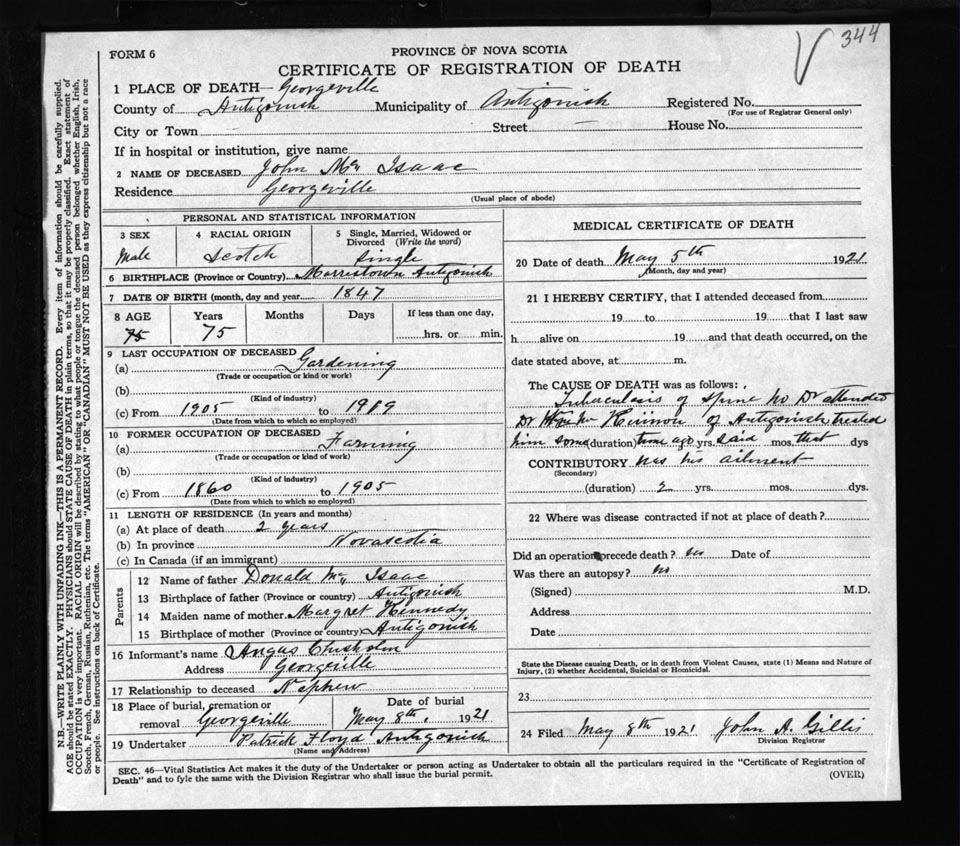 344
FORM 6
PROVINCE OF NOVA SCOTIA
CERTIFICATE OF REGISTRATION OF DEATH
1 PLACE OF DEATH— Georgeville
County of Antigonish Municipality of Antigonish Registered No.
(For use of Registrar General only)
City or Town Street — House No.
If in hospital or institution, give name
2 NAME OF DECEASED John Mc Isaac
Residence Georgeville
(Usual place of abode)
PERSONAL AND STATISTICAL INFORMATION
3 SEX 4 RACIAL ORIGIN 5 Single, Married, Widowed or Divorced (Write the word)
Male Scotch Single
6 BIRTHPLACE (Province or Country) Morristown Antigonish
7 DATE OF BIRTH (month, day and year 1847
8 AGE Years Months Days If less than one day,
75 75 hrs. or min.
9 LAST OCCUPATION OF DECEASED
(a) Gardening
(Trade or occupation or kind or work)
(b)
(Kind of industry)
(c) From 1905 to 1919
(Date from which to which so employed)
10 FORMER OCCUPATION OF DECEASED
(a) Farming
(Trade or occupation or kind of work)
(b)
(Kind of industry)
(c) From 1860 to 1905
(Date from which to which so employed)
11 LENGTH OF RESIDENCE (In years and months)
(a) At place of death 2 years
(b) In province Novascotia
(c) In Canada (if an immigrant)
Parents
12 Name of father Donald Mc Isaac
13 Birthplace of father (Province or country) Antigonish
14 Maiden name of mother Margret Kennedy
15 Birthplace of mother (Province or country) Antigonish
16 Informant's name Angus Chisholm
Address Georgeville
17 Relationship to deceased Nephew
18 Place of burial, cremation or removal Georgeville Date of burial May 8th, 1921
19 Undertaker Patrick Floyd Antigonish
(Name and Address)
MEDICAL CERTIFICATE OF DEATH
20 Date of death May 5th 1921
(Month, day and year)
21 I HEREBY CERTIFY, that I attended deceased from
19 to 19 that I last saw
h alive on 19 and that death occurred, on the
date stated above, at m.
The CAUSE OF DEATH was as follows:
Tuberculosis of spine no Dr attended
Dr Mc Kinnon of Antigonish treated
him some (duration) time ago yrs. said mos. that dys
CONTRIBUTORY was his ailment
(Secondary)
(duration) 2 yrs. mos. dys.
22 Where was disease contracted if not at place of death?
Did an operation precede death? Date of
Was there an autopsy? no
(Signed) M.D.
Address
Date
State the Disease causing Death, or in death from Violent Causes, state (1) Means and Nature of
Injury, (2) whether Accidental, Suicidal or Homicidal.
23
24 Filed May 8th 1921 John A. Gillis
Division Registrar
SEC. 46—Vital Statistics Act makes it the duty of the Undertaker or person acting as Undertaker to obtain all the particulars required in the "Certificate of Registration of
Death" and to fyle the same with the Division Registrar who shall issue the burial permit.
(OVER)
N.B.—WRITE PLAINLY WITH UNFADING INK—THIS IS A PERMANENT RECORD. Every item of information should be carefully supplied.
AGE should be stated EXACTLY. PHYSICIANS should STATE CAUSE OF DEATH in plain terms, so that it may be properly classified. Exact statement of
OCCUPATION is very important. RACIAL ORIGIN will be described by stating to what people or tongue the deceased person belonged whether English, Irish,
Scotch, French, German, Russian, Ruthenian, etc. The terms "AMERICAN" OR "CANADIAN" MUST NOT BE USED as they express citizenship but not a race
or people. See instructions on back of Certificate.